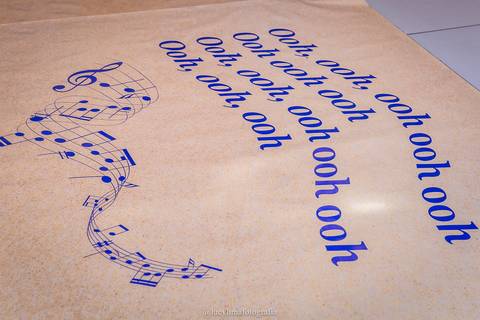 Ooh, ooh, ooh ooh ooh
Ooh ooh ooh
Ooh, ooh, ooh ooh ooh
Ooh, ooh, ooh